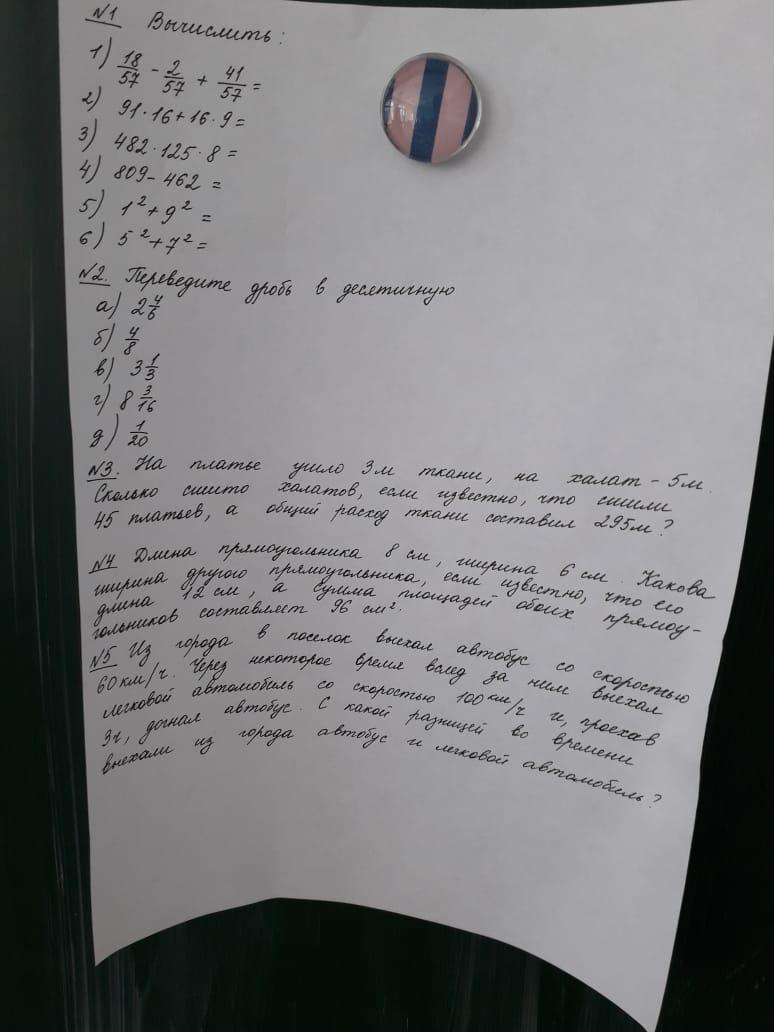 №1 Вычислить:
1) 18/57 - 2/57 + 41/57 =
2) 91·16+16·9=
3) 482·125·8=
4) 809-462=
5) 1²+9²=
6) 5²+7²=
№2. Переведите дробь в десятичную
а) 2 4/6
б) 4/8
в) 3 1/3
г) 8 3/16
д) 1/20
№3. На платье ушло 3м ткани, на халат - 5м.
Сколько сшито халатов, если известно, что сшили
45 платьев, а общий расход ткани составил 295м?
№4 Длина прямоугольника 8 см, ширина 6 см. Какова
ширина другого прямоугольника, если известно, что его
длина 12 см, а сумма площадей обоих прямоу-
гольников составляет 96 см².
№5 Из города в поселок выехал автобус со скоростью
60км/ч. Через некоторое время вслед за ним выехал
легковой автомобиль со скоростью 100км/ч и, проехав
3ч, догнал автобус. С какой разницей во времени
выехали из города автобус и легковой автомобиль?